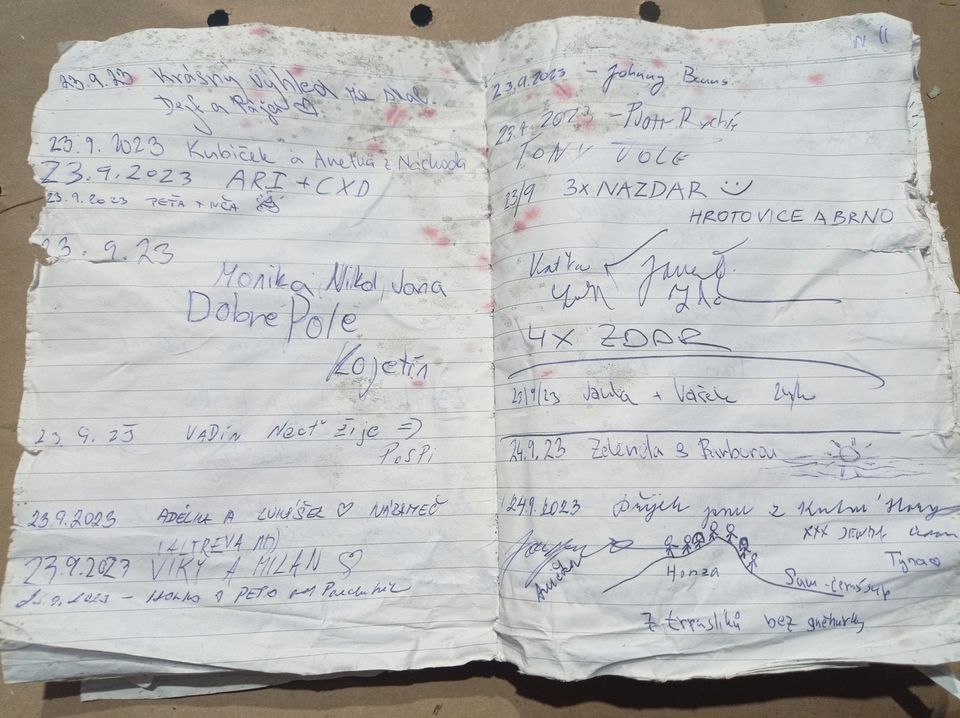 23.9.23 Krásný výhled
Dejf a Pája
23.9.2023 Kubíček a Anetka z Náchoda
23.9.2023 ARI + CXD
23.9.2023 PEŤA + IVČA
23.9.23
Monika, Nikol, Jana
Dobré Pole
Kojetín
23.9.23 VADIN Nechť žije =>
POSPI
23.9.2023 ADÉLKA A LUKÁŠEK ♡ NÁRAMEČ
(ALTREVA
23.9.2023 VIKY A MILAN ♡
23.9.2023 -
11
23.9.2023 - Johnny
23.9.2023 - Piotr
TONY VOLE
23/9 3x NAZDAR
HROTOVICE A BRNO
Katka
4x ZDAR
23/9/23 Janka + Vašek
24.9.23 Zdenda s Barborou
24.9.2023 jsme z Kutné Hory
XXX
Týna
Anička
Honza
Sam
7 trpaslíků bez sněhurky